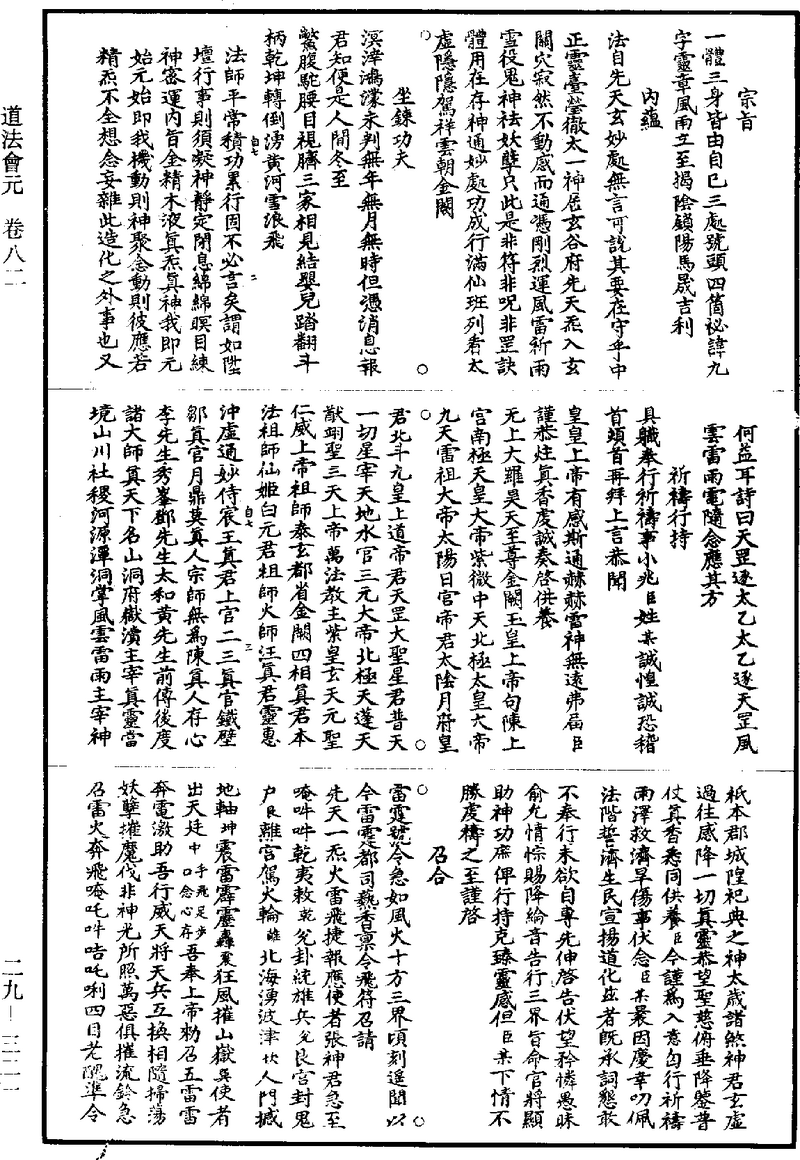 宗旨
一體三身皆由自己三處號頭四箇祕諱九
字靈章風雨立至揭陰鎖陽馬晟吉利
內蘊
法自先天玄妙處無言可說其要在守乎中
正靈臺瑩徹太一神居玄谷府先天炁入玄
關穴寂然不動感而通憑剛烈運風雷祈雨
雪役鬼神祛妖孽只此是非符非呪非罡訣
體用在存神通妙處功成行滿仙班列看太
虛隱隱駕祥雲朝金闕
坐鍊功夫
溟涬鴻濛未判無年無月無時但憑消息報
君知便是人間冬至
鱉腹駝腰目視臍三家相見結嬰兒踏翻斗
柄乾坤轉倒湧黃河雪浪飛
法師平常積功累行固不必言矣謂如陞
壇行事則須凝神靜定閉息綿綿瞑目練
神密運內旨全精木液真炁真神我即元
始元始即我機動則神聚念動則彼應若
精炁不全想念妄雜此造化之外事也又
何益耳詩曰天罡逐太乙太乙逐天罡風
雲雷雨電隨念應其方
祈禱行持
具職奉行祈禱事小兆臣姓某誠惶誠恐稽
首頓首再拜上言恭聞
皇皇上帝有感斯通赫赫雷神無遠弗屆臣
謹恭炷真香虔誠奏啓供養
无上大羅昊天至尊金闕玉皇上帝句陳上
宮南極天皇大帝紫微中天北極太皇大帝
九天雷祖大帝太陽日宮帝君太陰月府皇
君北斗九皇上道帝君天罡大聖星君普天
一切星宰天地水官三元大帝北極天蓬天
猷翊聖三天上帝萬法教主紫皇玄天元聖
仁威上帝祖師泰玄都省金闕四相真君本
法祖師仙姬白元君祖師火師汪真君靈惠
沖虛通妙侍宸王真君上官二三真官鐵壁
鄒真官月鼎莫真人宗師無為陳真人存心
李先生秀峯鄧先生太和黃先生前傳後度
諸大師真天下名山洞府嶽瀆主宰真靈當
境山川社稷河源潭洞掌風雲雷雨主宰神
祇本郡城隍祀典之神太歲諸煞神君玄虛
過往感降一切真靈恭望聖慈俯垂降鑒普
仗真香悉同供養臣今謹為入意㫖行祈禱
雨澤救濟旱傷事伏念臣某曩因慶幸叨佩
法階誓濟生民宣揚道化茲者既承詞懇敢
不奉行未欲自專先伸啓告伏望矜憐愚昧
俞允情悰賜降綸音告行三界旨命官將顯
助神功庶俾行持克臻靈感但臣某下情不
勝虔禱之至謹啓
召合
雷霆號令急如風火十方三界頃刻遥聞以
今雷霆都司爇香稟令飛符召請
先天一炁火雷飛捷報應使者張神君急至
唵吽吽乾夷敕乾兌卦統雄兵兌艮宮封鬼
戶艮離宮駕火輪離北海湧波津坎人門撼
地軸坤震雷霹靂轟震狂風摧山嶽巽使者
出天廷中手飛足步口念心存吾奉上帝勑召五雷雷
奔電激助吾行威天將天兵互換相隨掃蕩
妖孽摧魔伐非神光所照萬惡俱摧流鈴急
召雷火奔飛唵吒吽咭吒唎四目老醜準令
道法會元 卷八二
二九—三二一